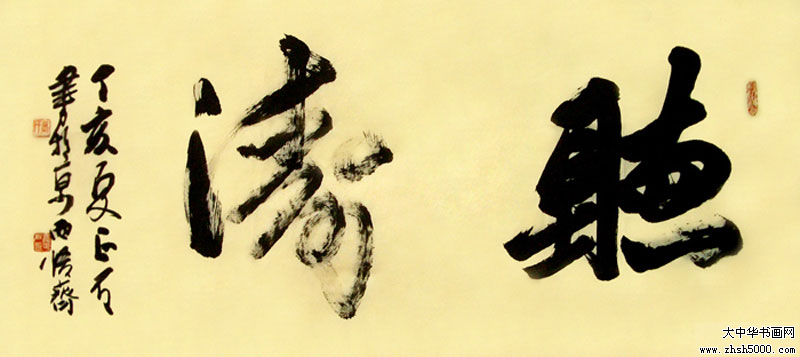 聽濤
丁亥夏正石
書於京西悟齋
大中华书画网
www.zhsh5000.com